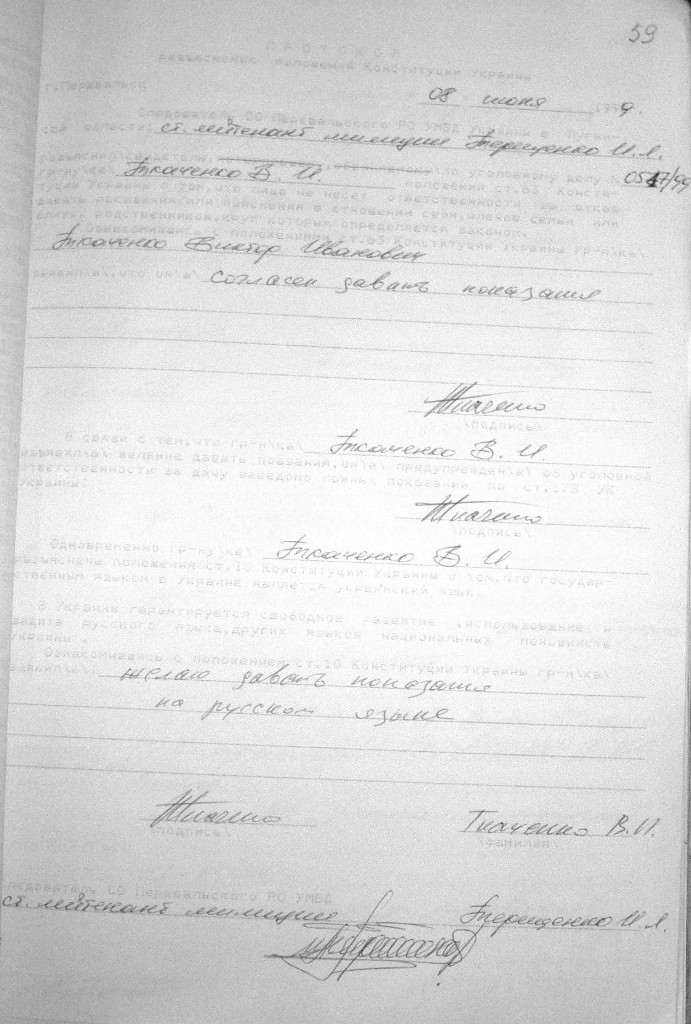 59
П Р О Т О К О Л
разъяснения положений Конституции Украины
г.Перевальск 08 июня 1999.
Следователь СО Перевальского РО УМВД Украины в Луган-
ской области: ст. лейтенант милиции Терещенко И.Л.
разъяснил\ по уголовному делу №
гр-ну\ке\ Ткаченко В. И. положения ст.63 Консти- 0547/99
туции Украины о том,что лицо не несет ответственности за отказ
давать показания или пояснения в отношении себя,членов семьи или
близких родственников,круг которых определяется законом.
Ознакомившись с положениями ст.63 Конституции Украины гр-н\ка\
Ткаченко Виктор Иванович
заявил\а\,что он\а\ согласен давать показания
Ткаченко
\подпись\
В связи с тем,что гр-н\ка\ Ткаченко В. И.
изъявил\а\ желание давать показания,он\а\ предупрежден\а\ об уголовной
ответственности за дачу заведомо ложных показаний по ст.178 УК
Украины.
Ткаченко
\подпись\
Одновременно гр-ну\ке\ Ткаченко В. И.
разъяснены положения ст.10 Конституции Украины о том,что государ-
ственным языком в Украине является украинский язык.
В Украине гарантируется свободное развитие ,использование и
защита русского языка,других языков национальных меньшинств
Украины.
Ознакомившись с положением ст.10 Конституции Украины гр-н\ка\
заявил\а\: желаю давать показания
на русском языке
Ткаченко Ткаченко В.И.
\подпись\ \фамилия\
Следователь СО Перевальского РО УМВД
ст. лейтенант милиции Терещенко И.Л.